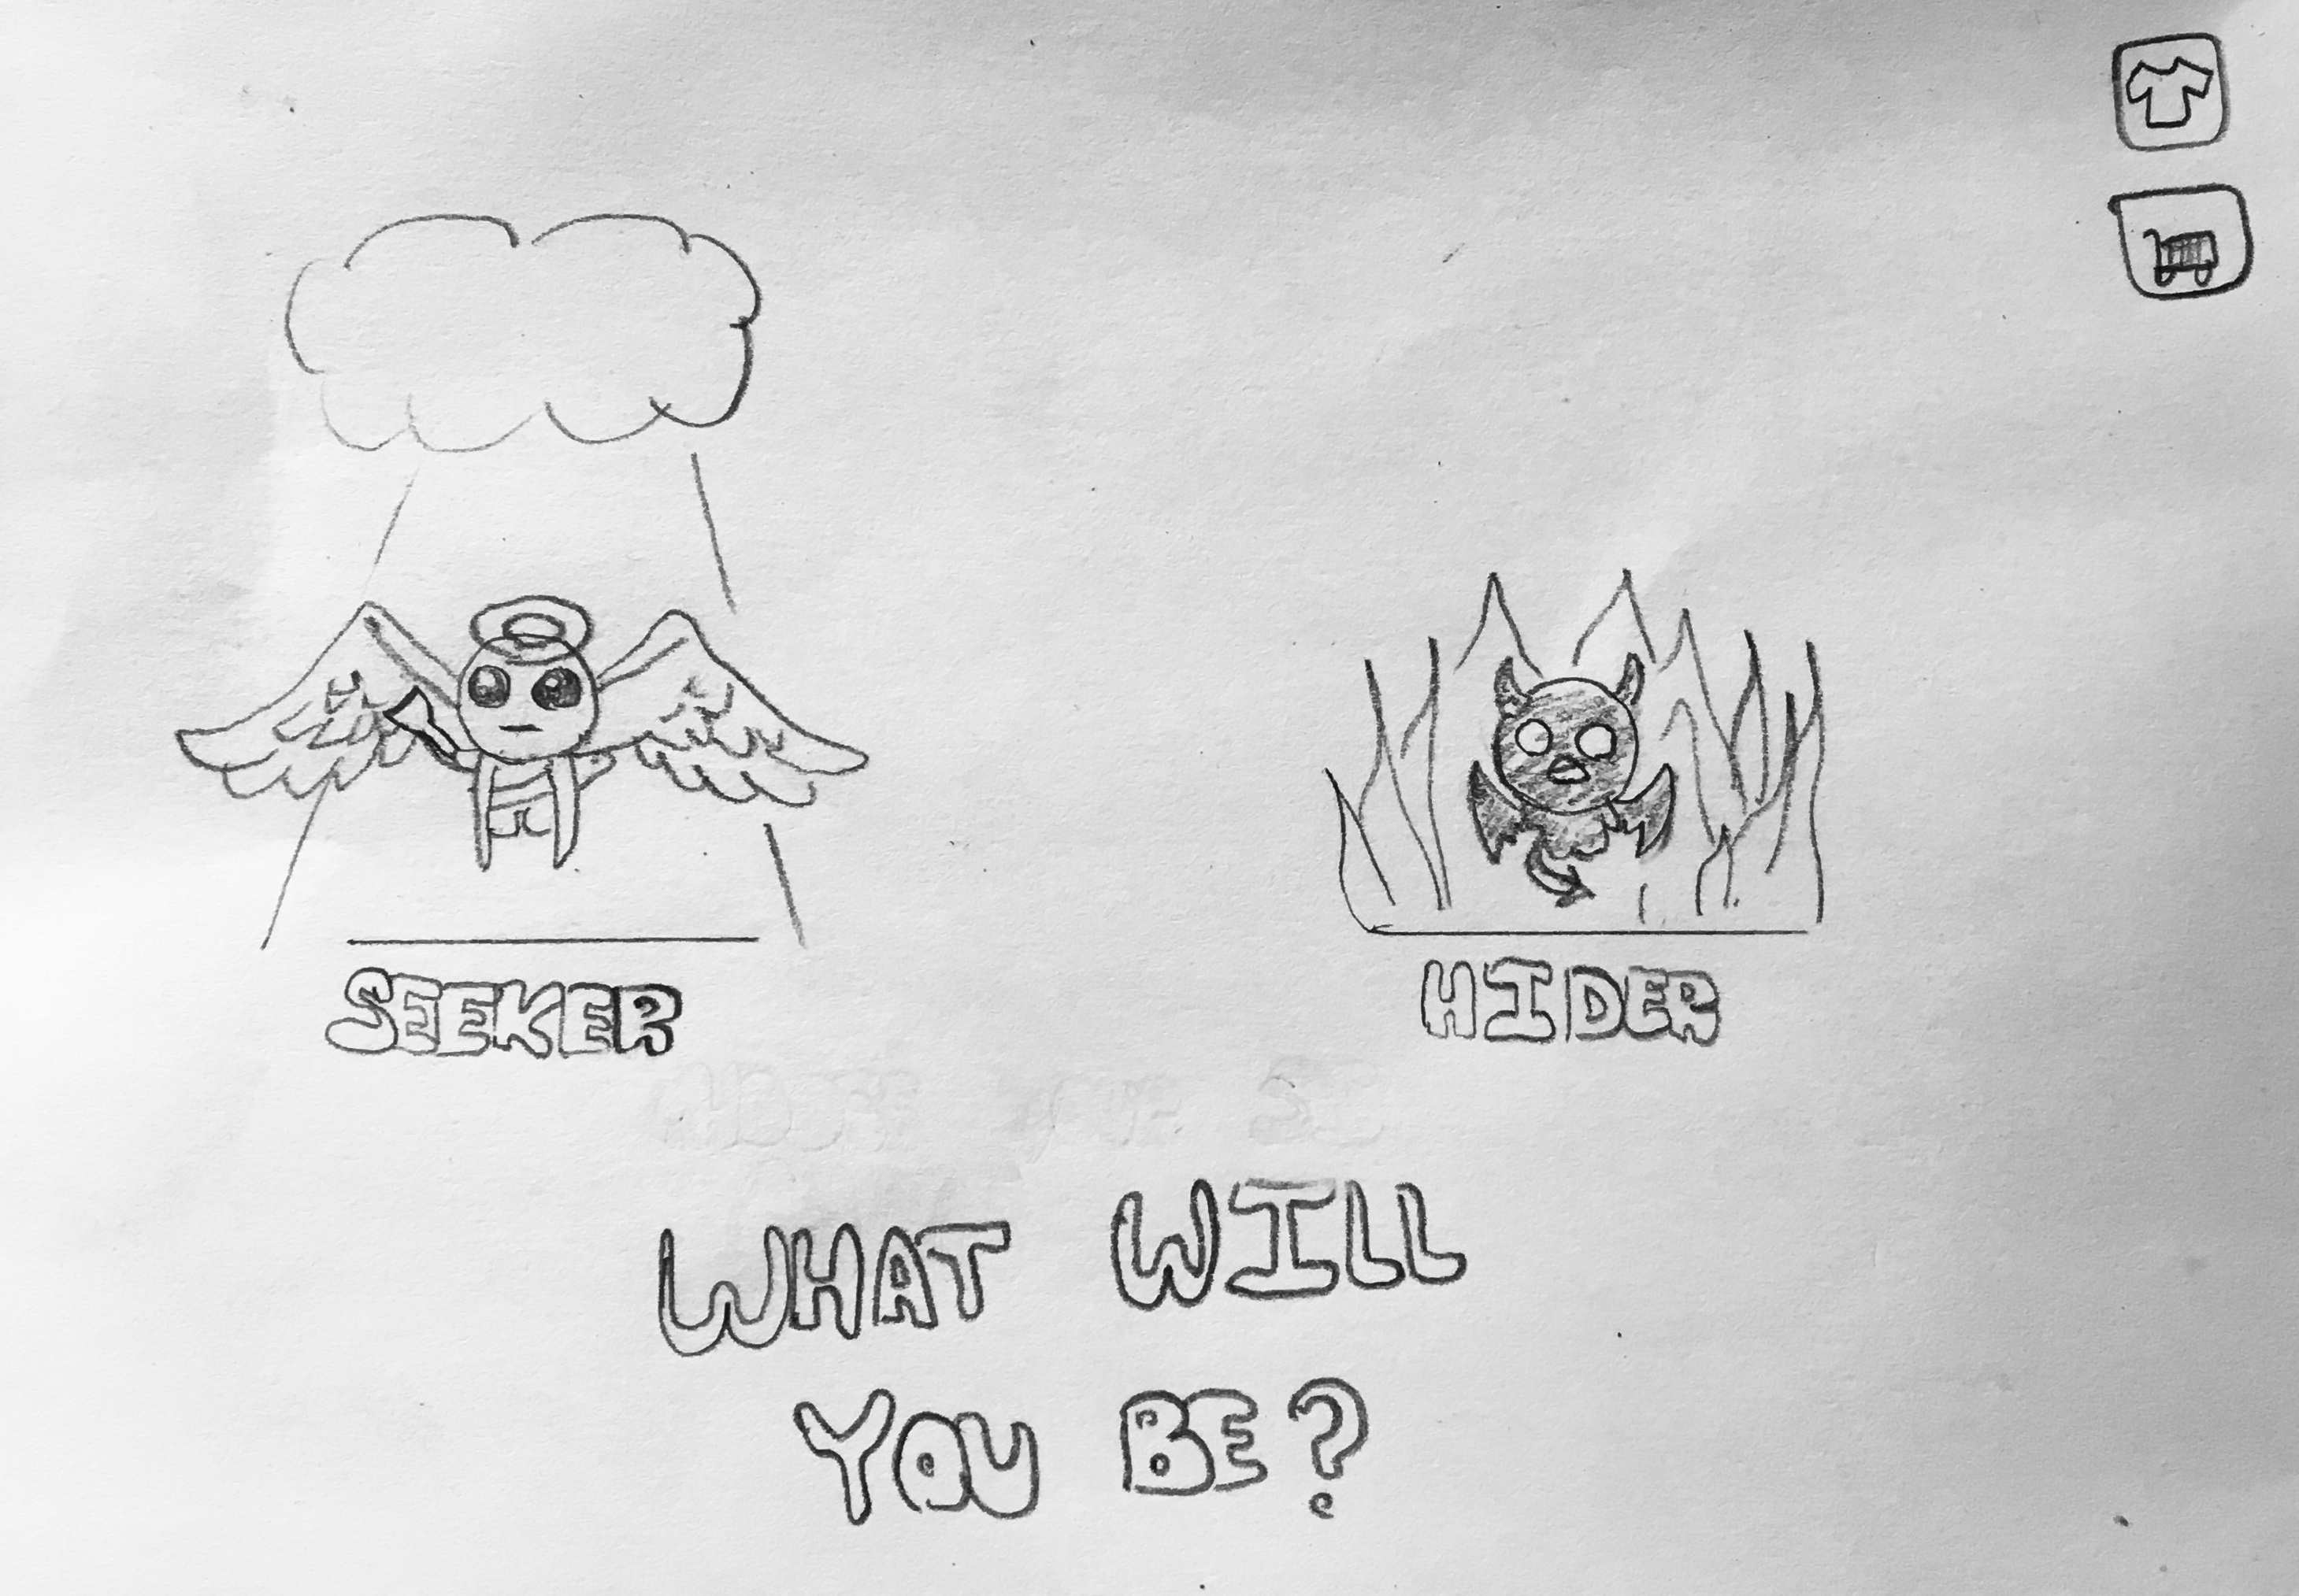 SEEKER
HIDER
WHAT WILL
YOU BE?